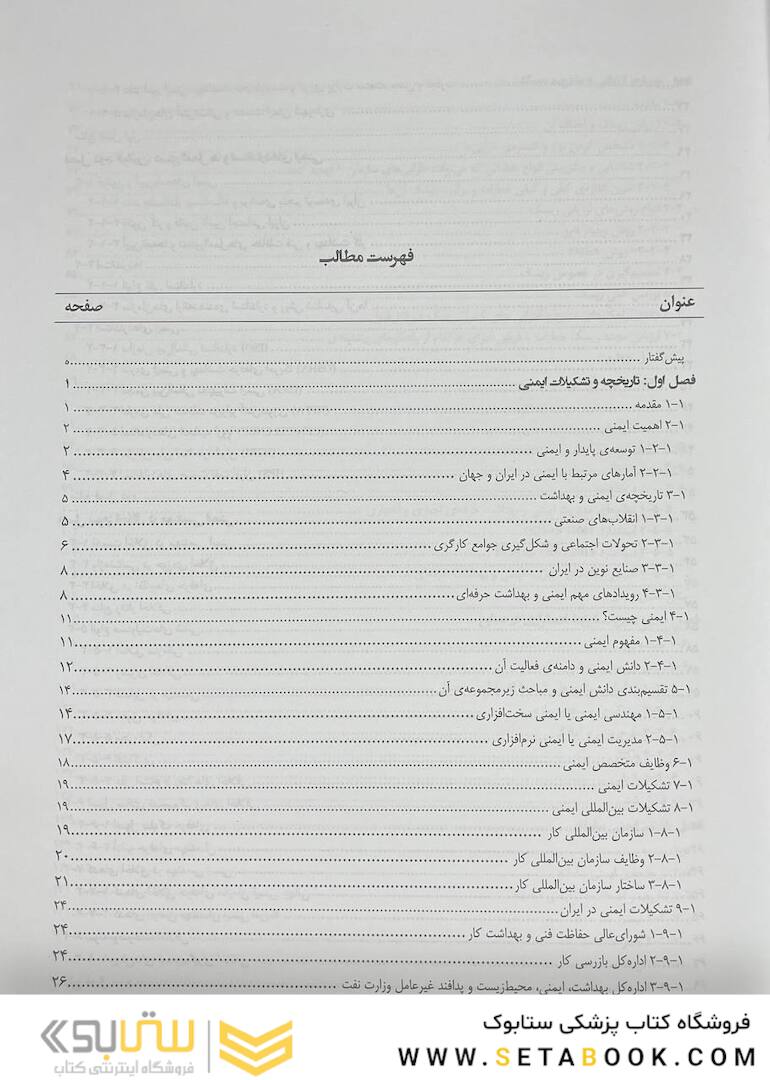 فهرست مطالب
عنوان صفحه
پیش‌گفتار ..... ه
فصل اول: تاریخچه و تشکیلات ایمنی ..... ۱
۱-۱ مقدمه ..... ۱
۲-۱ اهمیت ایمنی ..... ۲
۱-۲-۱ توسعه‌ی پایدار و ایمنی ..... ۲
۲-۲-۱ آمارهای مرتبط با ایمنی در ایران و جهان ..... ۴
۳-۱ تاریخچه‌ی ایمنی و بهداشت ..... ۵
۱-۳-۱ انقلاب‌های صنعتی ..... ۵
۲-۳-۱ تحولات اجتماعی و شکل‌گیری جوامع کارگری ..... ۶
۳-۳-۱ صنایع نوین در ایران ..... ۸
۴-۳-۱ رویدادهای مهم ایمنی و بهداشت حرفه‌ای ..... ۸
۴-۱ ایمنی چیست؟ ..... ۱۱
۱-۴-۱ مفهوم ایمنی ..... ۱۱
۲-۴-۱ دانش ایمنی و دامنه‌ی فعالیت آن ..... ۱۲
۵-۱ تقسیم‌بندی دانش ایمنی و مباحث زیرمجموعه‌ی آن ..... ۱۴
۱-۵-۱ مهندسی ایمنی یا ایمنی سخت‌افزاری ..... ۱۴
۲-۵-۱ مدیریت ایمنی یا ایمنی نرم‌افزاری ..... ۱۷
۶-۱ وظایف متخصص ایمنی ..... ۱۸
۷-۱ تشکیلات ایمنی ..... ۱۹
۸-۱ تشکیلات بین‌المللی ایمنی ..... ۱۹
۱-۸-۱ سازمان بین‌المللی کار ..... ۱۹
۲-۸-۱ وظایف سازمان بین‌المللی کار ..... ۲۰
۳-۸-۱ ساختار سازمان بین‌المللی کار ..... ۲۱
۹-۱ تشکیلات ایمنی در ایران ..... ۲۴
۱-۹-۱ شورای‌عالی حفاظت فنی و بهداشت کار ..... ۲۴
۲-۹-۱ اداره‌کل بازرسی کار ..... ۲۴
۳-۹-۱ اداره‌کل بهداشت، ایمنی، محیط‌زیست و پدافند غیرعامل وزارت نفت ..... ۲۶
فروشگاه کتاب پزشکی ستابوک
WWW.SETABOOK.COM
ستابوک
فروشگاه اینترنتی کتاب